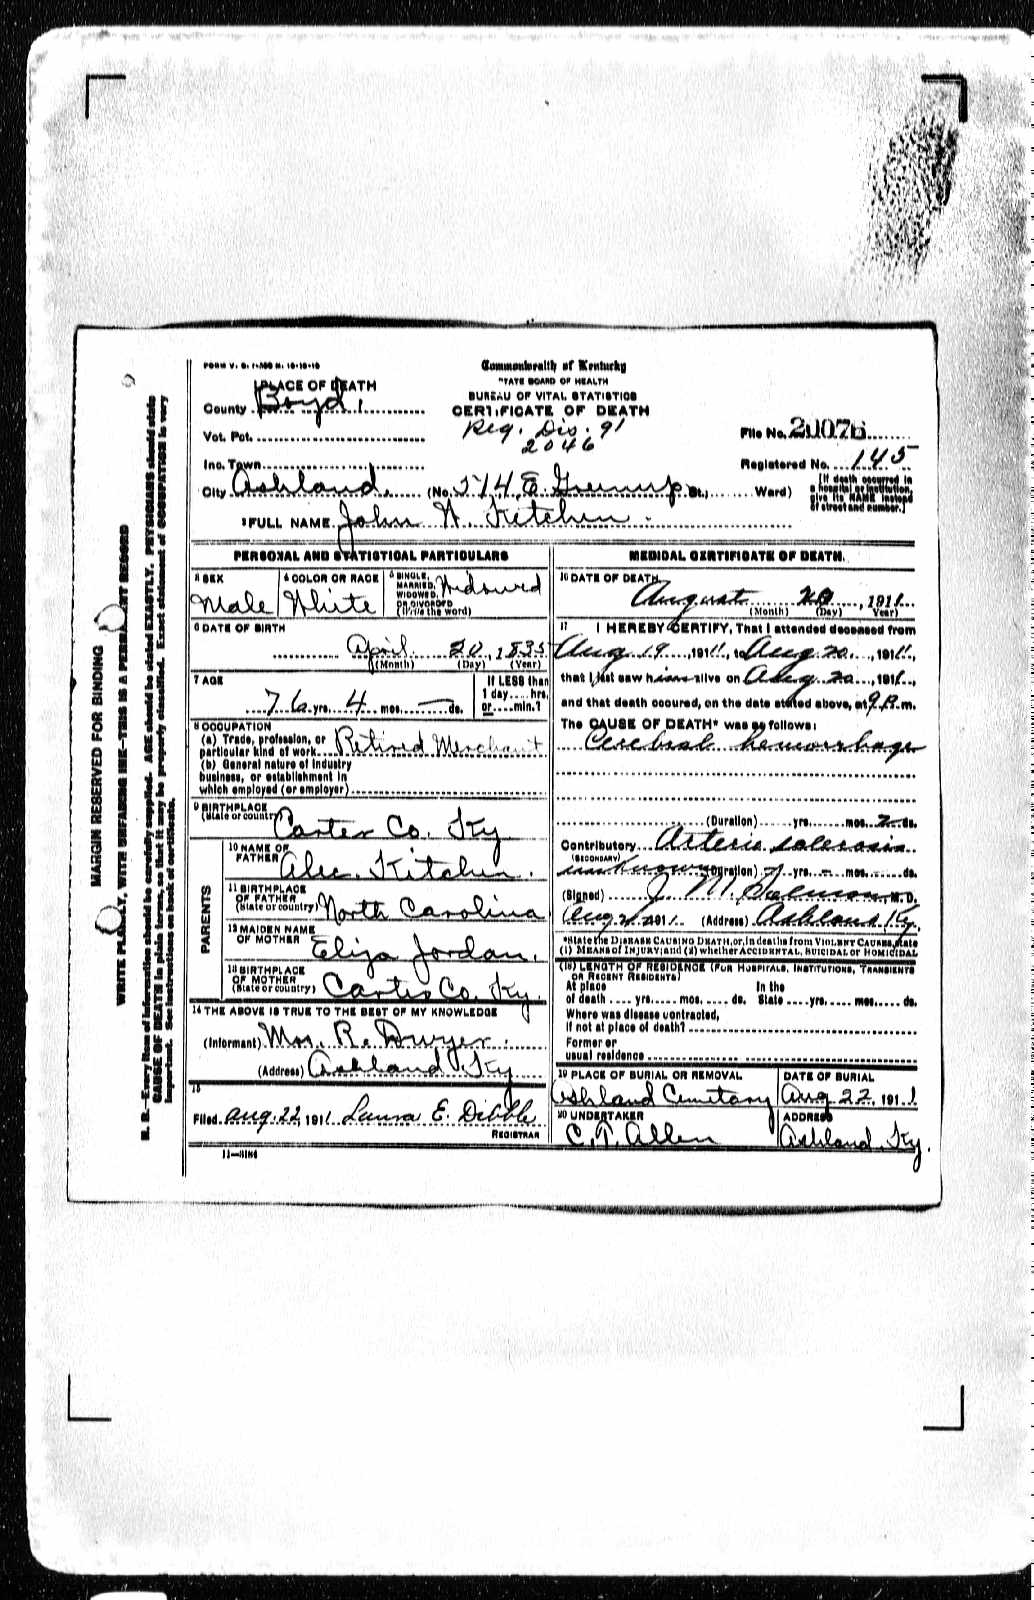 FORM V. S. 1-
Commonwealth of Kentucky
STATE BOARD OF HEALTH
BUREAU OF VITAL STATISTICS
CERTIFICATE OF DEATH
Reg. Dis. 91
2046
1 PLACE OF DEATH
County Boyd
Vot. Pct.
File No. 20076
Inc. Town
Registered No. 145
City Ashland. (No. 514 E Greenup St.; Ward) [If death occurred in a hospital or institution, give its NAME instead of street and number.]
2 FULL NAME John W. Kitchen.
PERSONAL AND STATISTICAL PARTICULARS
3 SEX Male
4 COLOR OR RACE White
5 SINGLE, MARRIED, WIDOWED, OR DIVORCED (Write the word) Widowed
6 DATE OF BIRTH
April 20, 1835
(Month) (Day) (Year)
7 AGE
76 yrs. 4 mos. — ds.
If LESS than 1 day hrs. or min.?
8 OCCUPATION
(a) Trade, profession, or particular kind of work Retired Merchant
(b) General nature of industry business, or establishment in which employed (or employer)
9 BIRTHPLACE
(State or country) Carter Co. Ky
PARENTS
10 NAME OF FATHER Alec. Kitchen.
11 BIRTHPLACE OF FATHER (State or country) North Carolina
12 MAIDEN NAME OF MOTHER Eliza Jordan.
13 BIRTHPLACE OF MOTHER (State or country) Carter Co. Ky.
14 THE ABOVE IS TRUE TO THE BEST OF MY KNOWLEDGE
(Informant) Mrs. R. Dwyer.
(Address) Ashland Ky
15
Filed Aug. 22, 1911 Laura E. Dibble
REGISTRAR
MEDICAL CERTIFICATE OF DEATH.
16 DATE OF DEATH
August 20, 1911
(Month) (Day) Year)
17 I HEREBY CERTIFY, That I attended deceased from
Aug 19, 1911, to Aug 20, 1911,
that I last saw him alive on Aug 20, 1911,
and that death occured, on the date stated above, at 9 P. m.
The CAUSE OF DEATH* was as follows:
Cerebral hemorrhage
(Duration) yrs. mos. 2 ds.
Contributory Arterio sclerosis
(SECONDARY)
unknown (Duration) yrs. mos. ds.
(Signed) J. M. Salmon M. D.
Aug 21 1911 (Address) Ashland Ky.
*State the DISEASE CAUSING DEATH, or, in deaths from VIOLENT CAUSES, state
(1) MEANS OF INJURY; and (2) whether ACCIDENTAL, SUICIDAL or HOMICIDAL
(18) LENGTH OF RESIDENCE (FOR HOSPITALS, INSTITUTIONS, TRANSIENTS OR RECENT RESIDENTS)
At place of death yrs. mos. ds. In the State yrs. mos. ds.
Where was disease contracted, if not at place of death?
Former or usual residence
19 PLACE OF BURIAL OR REMOVAL Ashland Cemetary
DATE OF BURIAL Aug 22, 1911
20 UNDERTAKER C. T. Allen
ADDRESS Ashland Ky.
MARGIN RESERVED FOR BINDING
WRITE PLAINLY, WITH UNFADING INK—THIS IS A PERMANENT RECORD
N. B.—Every item of information should be carefully supplied. AGE should be stated EXACTLY. PHYSICIANS should state
CAUSE OF DEATH in plain terms, so that it may be properly classified. Exact statement of OCCUPATION is very
important. See instructions on back of certificate.